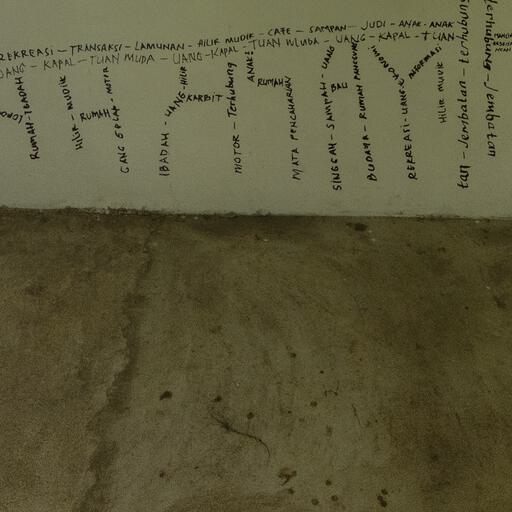 REKREASI - TRANSAKSI - LAMUNAN - HILIR MUDIK - CAFE - SAMPAN - JUDI - ANAK - ANAK
UANG - KAPAL - TUAN MUDA - UANG - KAPAL - TUAN MUDA - UANG - KAPAL - TUAN
RUMAH - IBADAH
HILIR - MUDIK
RUMAH
GANG SEPEDA - MOTOR
IBADAH - UANG - HILIR
KARBIT
MOTOR - Terhubung
ANAK
RUMAH
MATA PENCAHARIAN
SINGGAH - SAMPAH - UANG
BAU
BUDAYA - RUMAH PANGGUNG
REKREASI - UANG
INFORMASI
HILIR MUDIK
tan - Jembatan - terhubung
terhubung - Jembatan